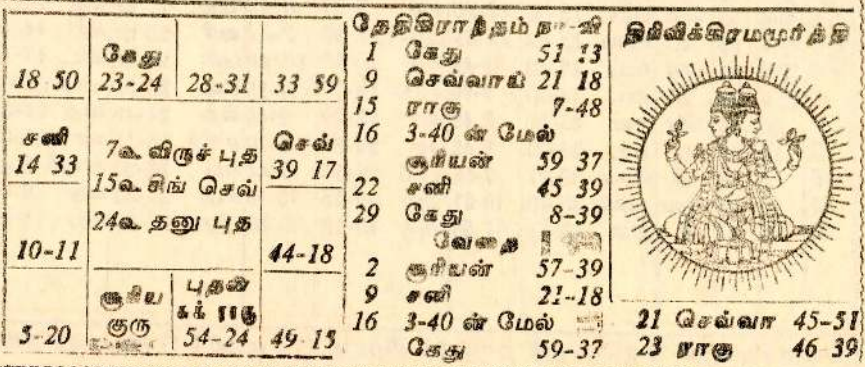 கேது
18-50 23-24 28-31 33 59
சனி
14 33
7உ விருச் புத
15உ சிங் செவ்
24உ தனு புத
செவ்
39 17
10-11 44-18
சூரிய
குரு
புதன்
சுக் ராகு
5-20 54-24 49-15
தேதிகிராந்தம் வி
1 கேது 51 13
9 செவ்வாய் 21 18
15 ராகு 7-48
16 3-40 ன் மேல்
சூரியன் 59 37
22 சனி 45 39
29 கேது 8-39
வேதை
2 சூரியன் 57-39
9 சனி 21-18
16 3-40 ன் மேல்
கேது 59-37
திரிவிக்கிரமமூர்த்தி
21 செவ்வா 45-51
23 ராகு 46 39